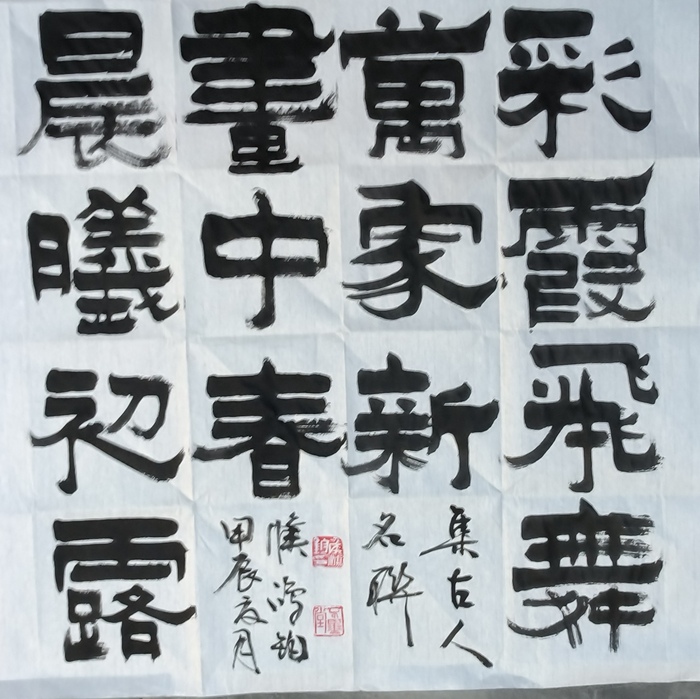 彩霞飛舞
萬家新
畫中春
晨曦初露
集古人
名聯
鴻鈞
甲辰夏月